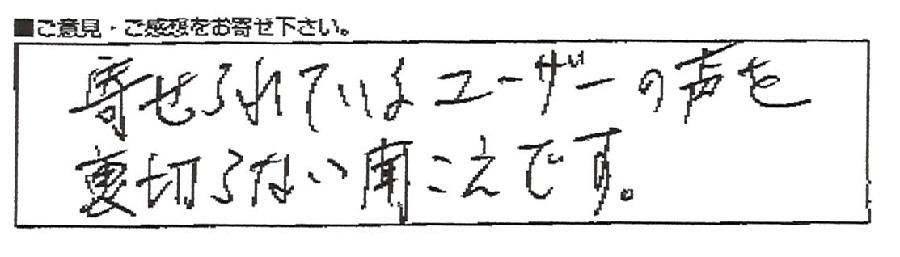 ■ご意見・ご感想をお寄せ下さい。
寄せられているユーザーの声を
裏切らない聞こえです。